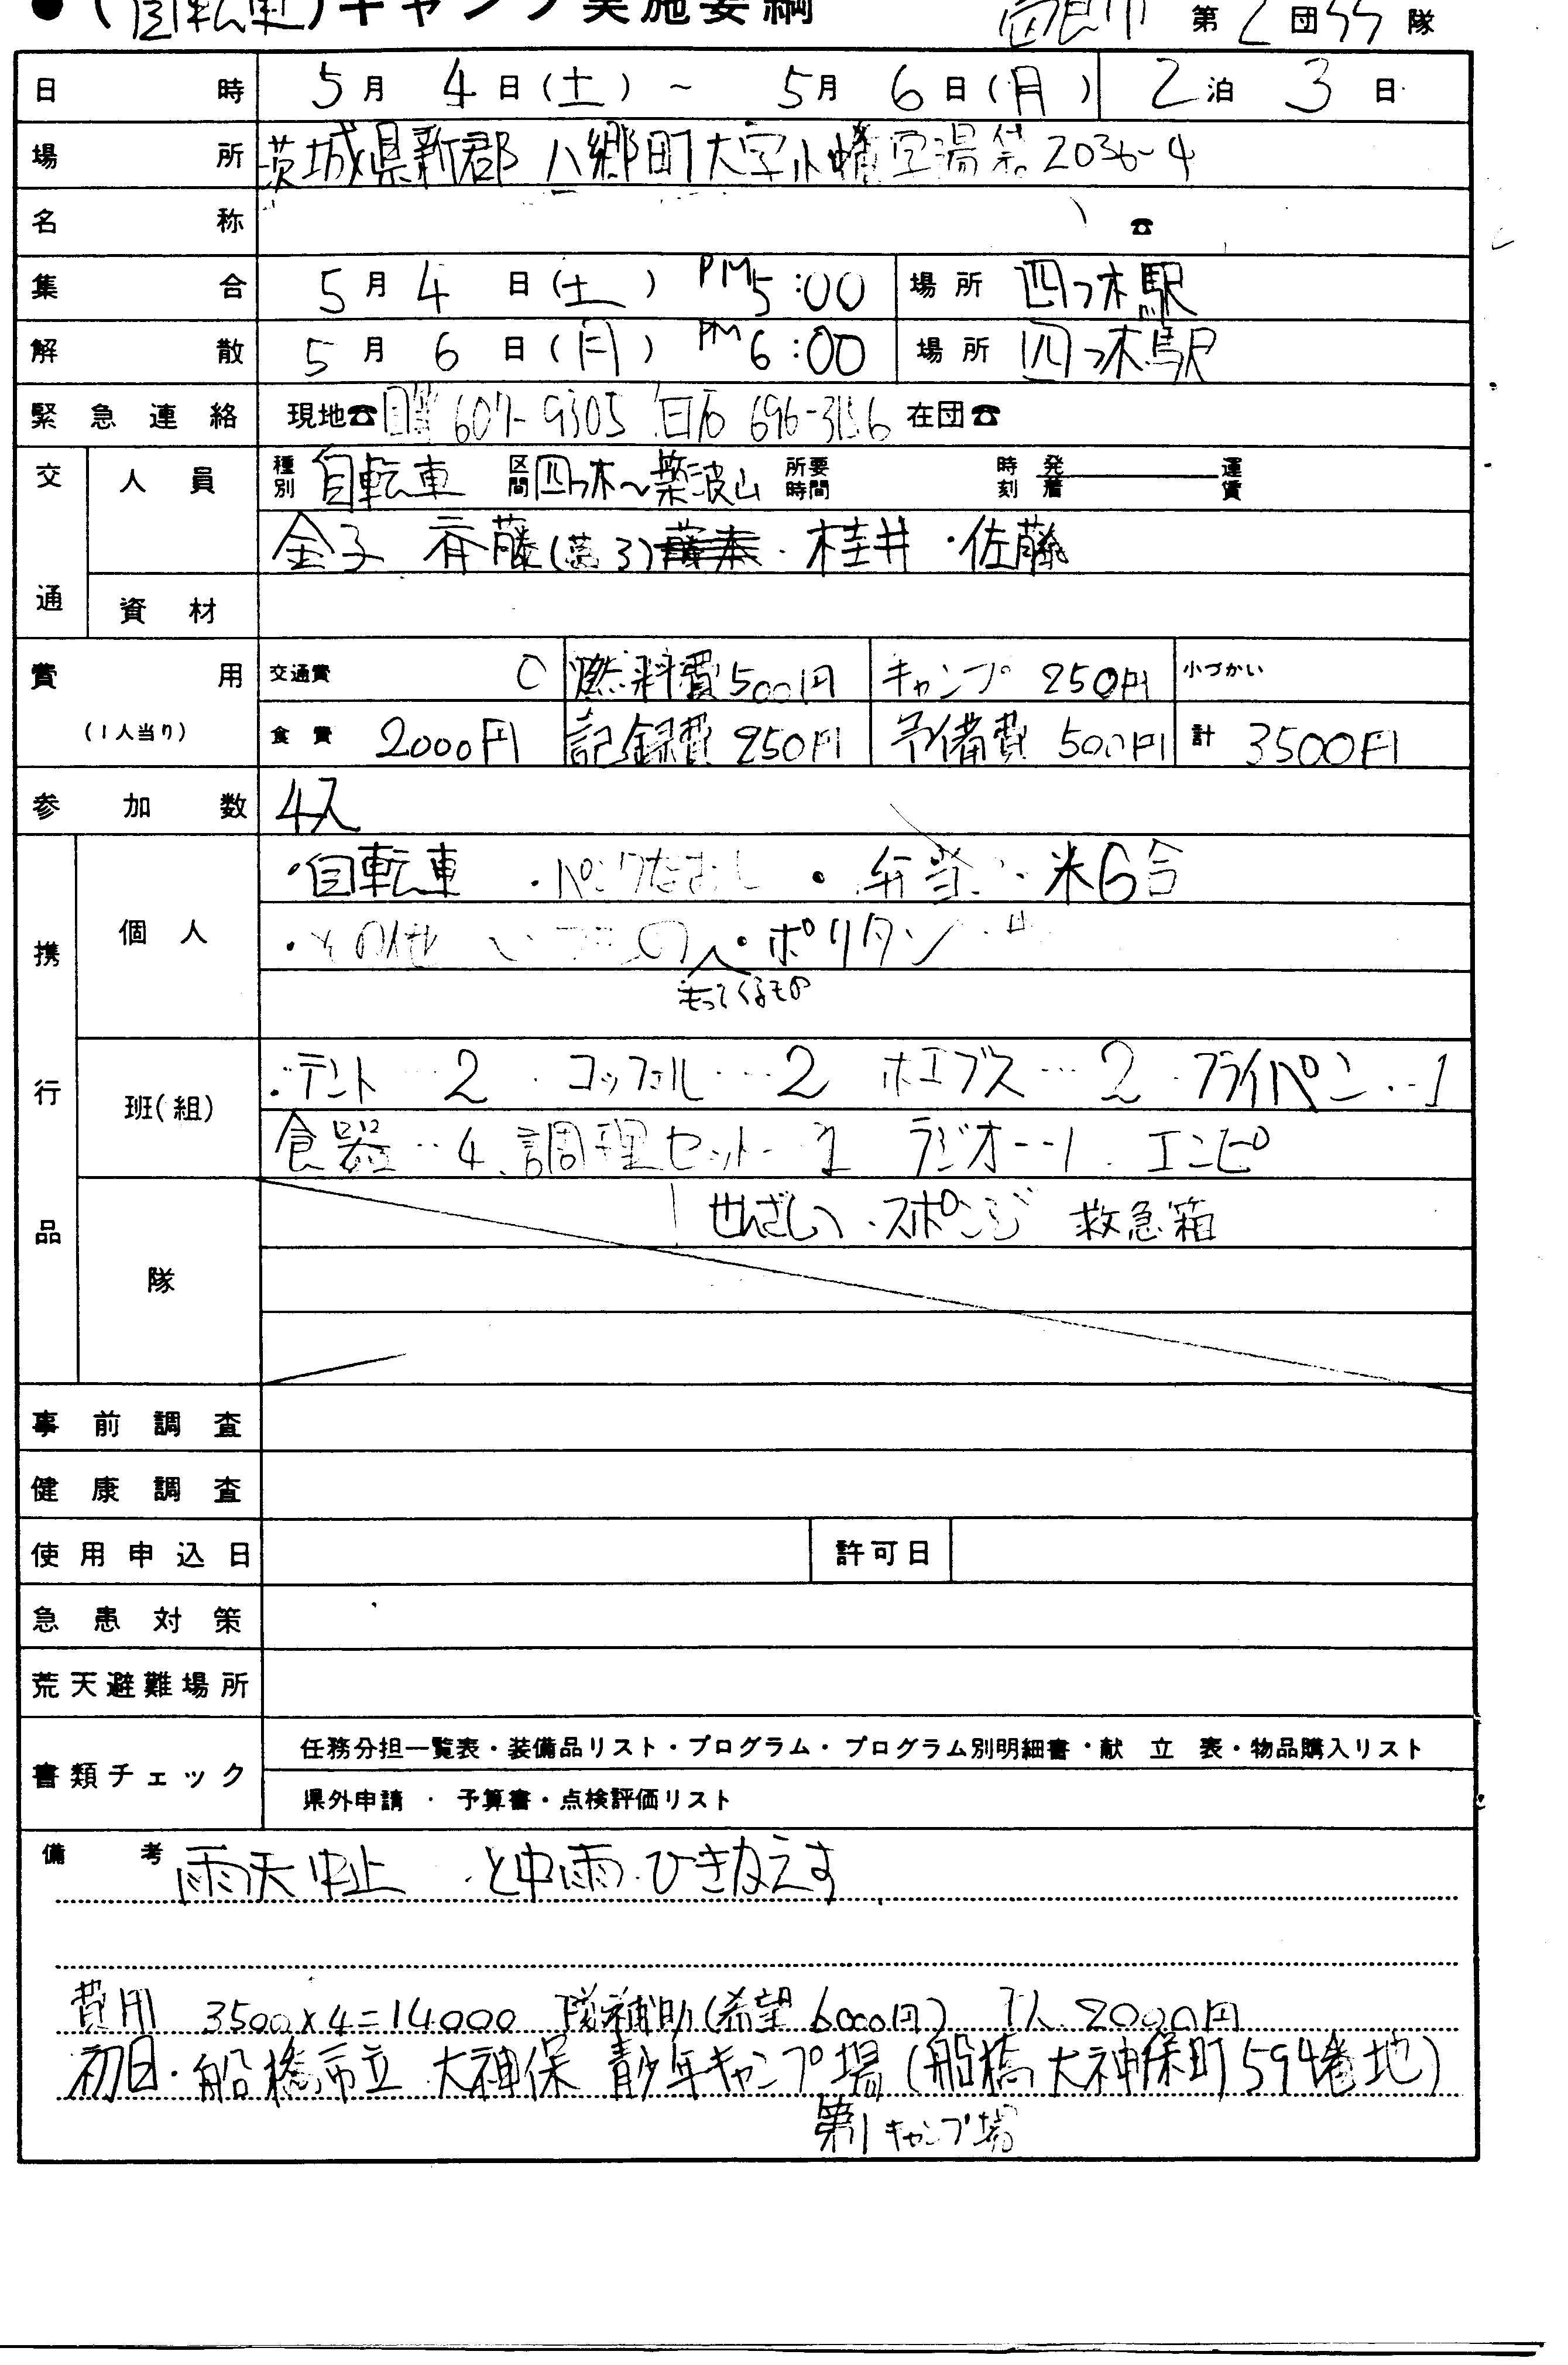 ●(自転車)キャンプ実施要綱 第2団SS隊
日時 5月4日(土)~5月6日(月) 2泊3日
場所 茨城県新郡八郷町大字小幡字湯袋2036-4
名称 ☎
集合 5月4日(土) PM5:00 場所 四つ木駅
解散 5月6日(月) PM6:00 場所 四つ木駅
緊急連絡 現地☎ 607-9305 白石 696-3156 在団☎
交通 人員 種別 自転車 区間 四つ木~築波山 所要時間 時刻 発着 運賃
金子 斉藤 桂井・佐藤
資材
費用 交通費 0 燃料費500円 キャンプ 250円 小づかい
(1人当り) 食費 2000円 記録費 250円 予備費 500円 計 3500円
参加数 4人
携行品 個人 ・自転車 ・パンクなおし ・弁当 ・米6合
・その他 いつもの ・ポリタン
もってくるもの
班(組) ・テント…2 ・コッフェル…2 ホエブス…2 ・フライパン…1
食器…4 調理セット…1 ラジオ…1 エンピ
隊 せんざい・スポンジ 救急箱
事前調査
健康調査
使用申込日 許可日
急患対策
荒天避難場所
書類チェック 任務分担一覧表・装備品リスト・プログラム・プログラム別明細書・献立表・物品購入リスト
県外申請・予算書・点検評価リスト
備考 雨天中止 ・と中雨・ひきかえす
費用 3500×4=14000 隊補助(希望6000円) 1人2000円
初日・船橋市立 大神保 青少年キャンプ場(船橋大神保町594番地)
第1キャンプ場